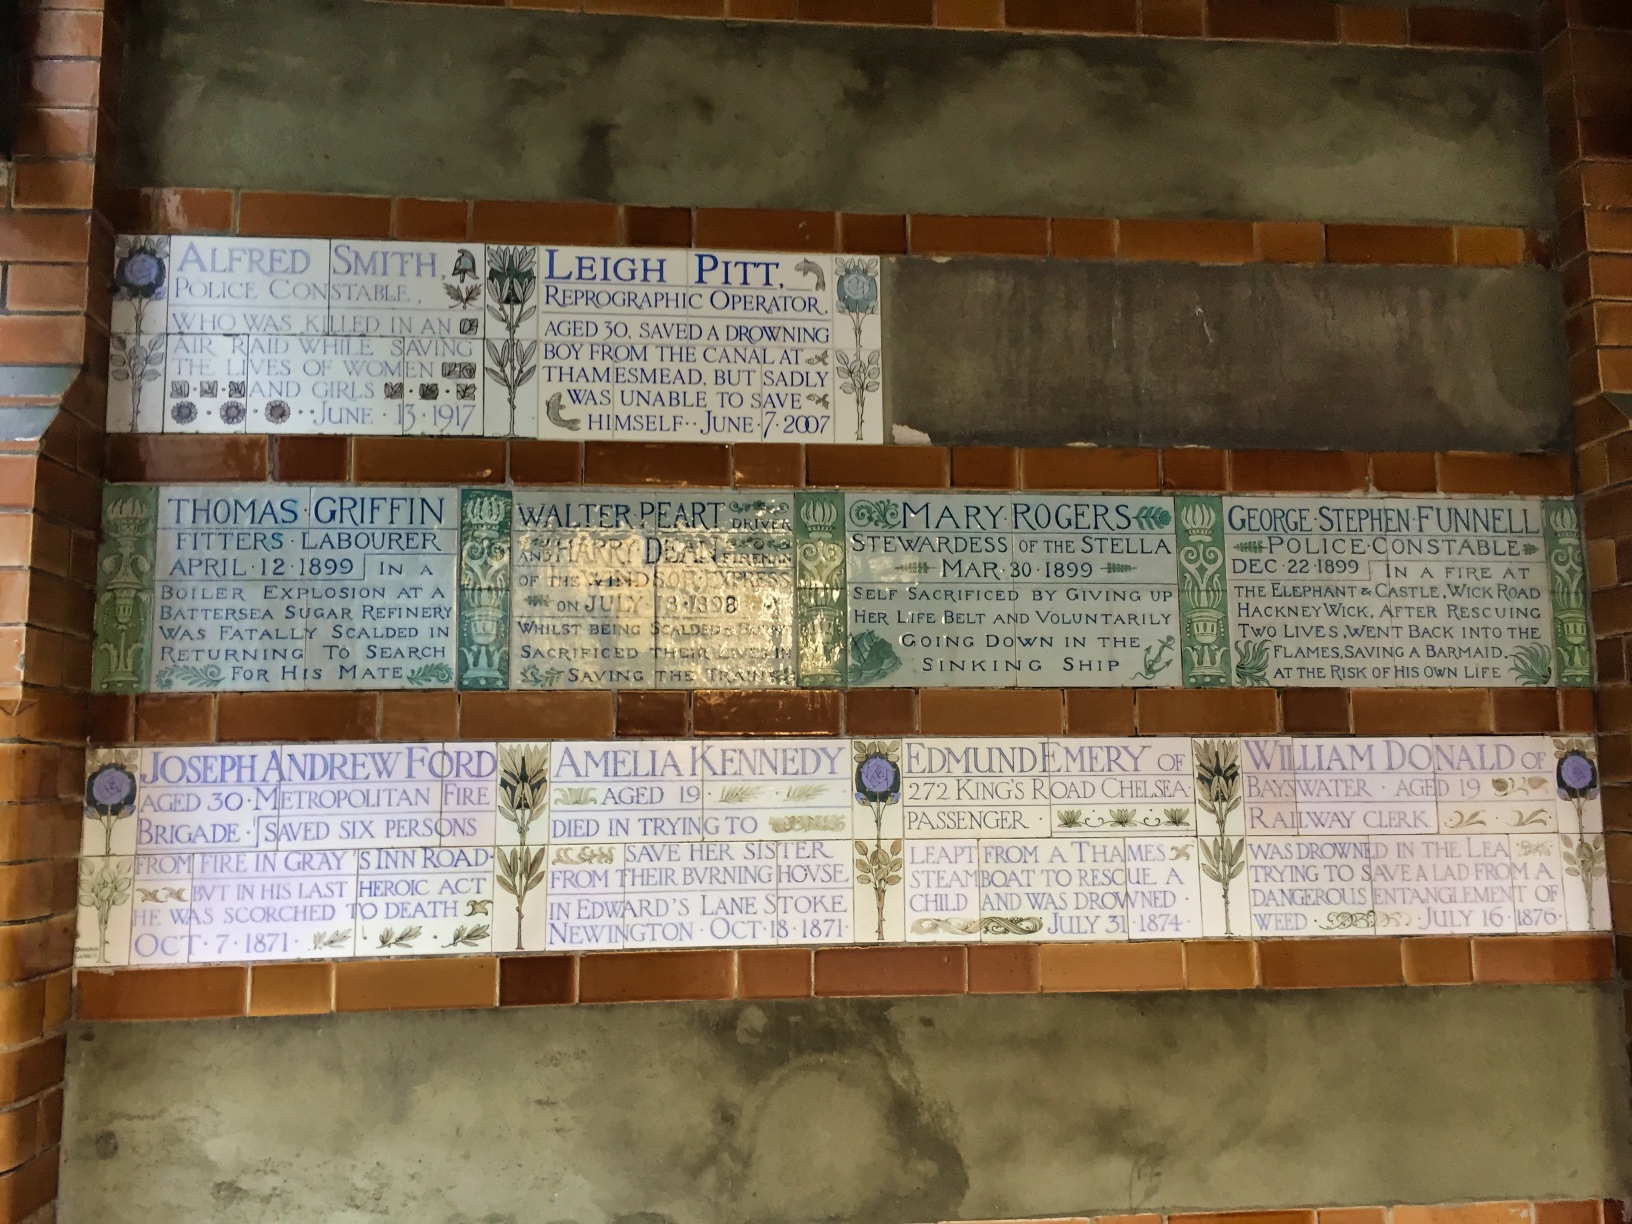 ALFRED SMITH,
POLICE CONSTABLE,
WHO WAS KILLED IN AN
AIR RAID WHILE SAVING
THE LIVES OF WOMEN
AND GIRLS
··JUNE·13·1917
LEIGH PITT,
REPROGRAPHIC OPERATOR,
AGED 30, SAVED A DROWNING
BOY FROM THE CANAL AT
THAMESMEAD, BUT SADLY
WAS UNABLE TO SAVE
HIMSELF··JUNE·7·2007
THOMAS·GRIFFIN
FITTERS·LABOURER
APRIL·12·1899 IN A
BOILER EXPLOSION AT A
BATTERSEA SUGAR REFINERY
WAS FATALLY SCALDED IN
RETURNING TO SEARCH
FOR HIS MATE
WALTER·PEART DRIVER
AND HARRY·DEAN FIREMAN
OF THE WINDSOR EXPRESS
ON JULY 18·1898
WHILST BEING SCALDED & BURNT
SACRIFICED THEIR LIVES IN
SAVING THE TRAIN
MARY·ROGERS
STEWARDESS OF THE STELLA
MAR·30·1899
SELF SACRIFICED BY GIVING UP
HER LIFE BELT AND VOLUNTARILY
GOING DOWN IN THE
SINKING SHIP
GEORGE·STEPHEN·FUNNELL
POLICE·CONSTABLE
DEC·22·1899 IN A FIRE AT
THE ELEPHANT & CASTLE, WICK ROAD
HACKNEY WICK, AFTER RESCUING
TWO LIVES, WENT BACK INTO THE
FLAMES, SAVING A BARMAID,
AT THE RISK OF HIS OWN LIFE
JOSEPH ANDREW FORD
AGED 30·METROPOLITAN FIRE
BRIGADE·SAVED SIX PERSONS
FROM FIRE IN GRAY'S INN ROAD·
BVT IN HIS LAST HEROIC ACT
HE WAS SCORCHED TO DEATH
OCT·7·1871·
AMELIA KENNEDY
AGED 19·
DIED IN TRYING TO
SAVE HER SISTER
FROM THEIR BVRNING HOVSE
IN EDWARD'S LANE STOKE
NEWINGTON·OCT·18·1871·
EDMUND EMERY OF
272 KING'S ROAD CHELSEA·
PASSENGER·
LEAPT FROM A THAMES
STEAMBOAT TO RESCUE A
CHILD AND WAS DROWNED·
JULY 31·1874·
WILLIAM DONALD OF
BAYSWATER·AGED 19
RAILWAY CLERK
WAS DROWNED IN THE LEA
TRYING TO SAVE A LAD FROM A
DANGEROUS ENTANGLEMENT OF
WEED·JULY 16·1876·